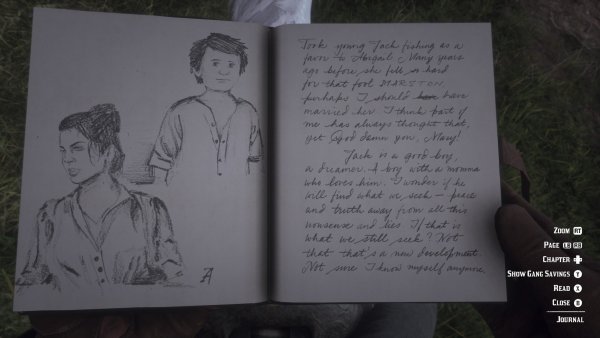 Took young Jack fishing as a
favor to Abigail. Many years
ago before she fell so hard
for that fool MARSTON
perhaps I should have
married her. I think part of
me has always thought that,
yet God damn you, Mary!
Jack is a good boy,
a dreamer. A boy with a momma
who loves him. I wonder if he
will find what we seek - peace
and truth away from all this
nonsense and lies. If that is
what we still seek? Not
that that's a new development.
Not sure I know myself anymore.
A
ZOOM RT
PAGE LB RB
CHAPTER
SHOW GANG SAVINGS Y
READ X
CLOSE B
JOURNAL